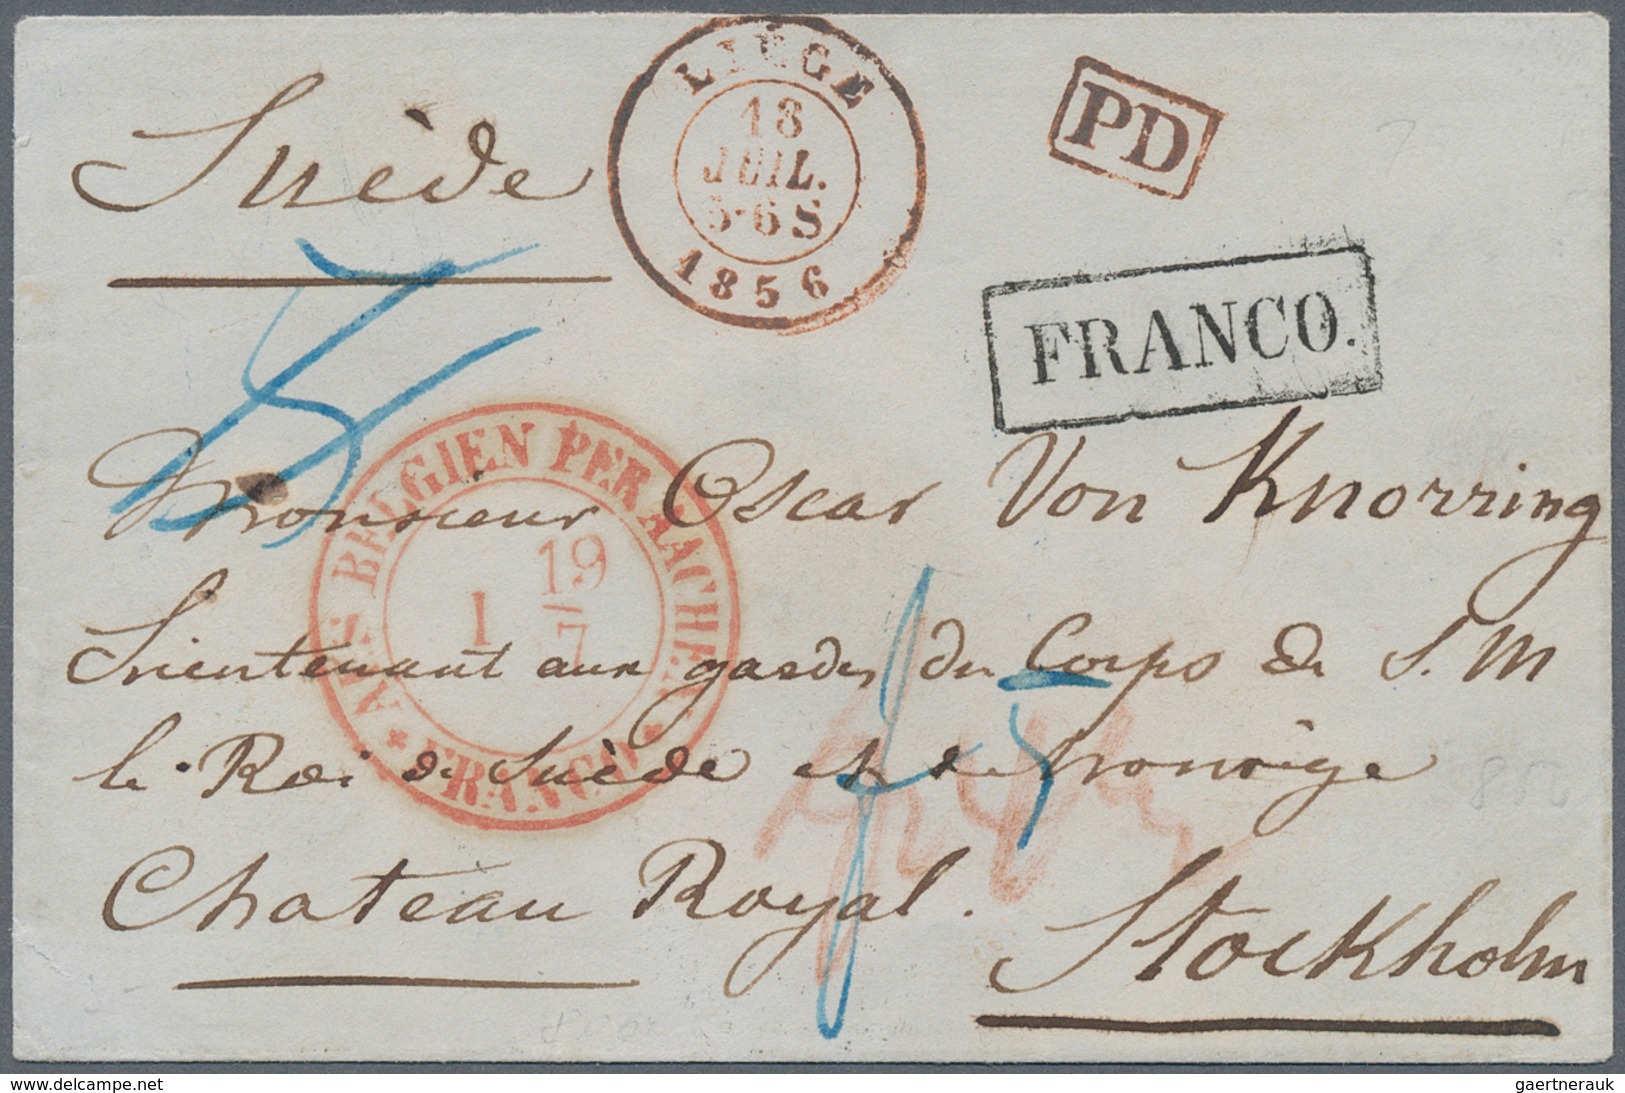 LIÈGE
18
JUIL.
5-6 S
1856
PD
Suède
FRANCO.
AUS BELGIEN PER AACHEN
19
1 7
* FRANCO *
Monsieur Oscar Von Knorring
Lieutenant aux gardes du Corps de S. M
le Roi de Suède et de Norvège
Chateau Royal. Stockholm
850
gaertnerauk